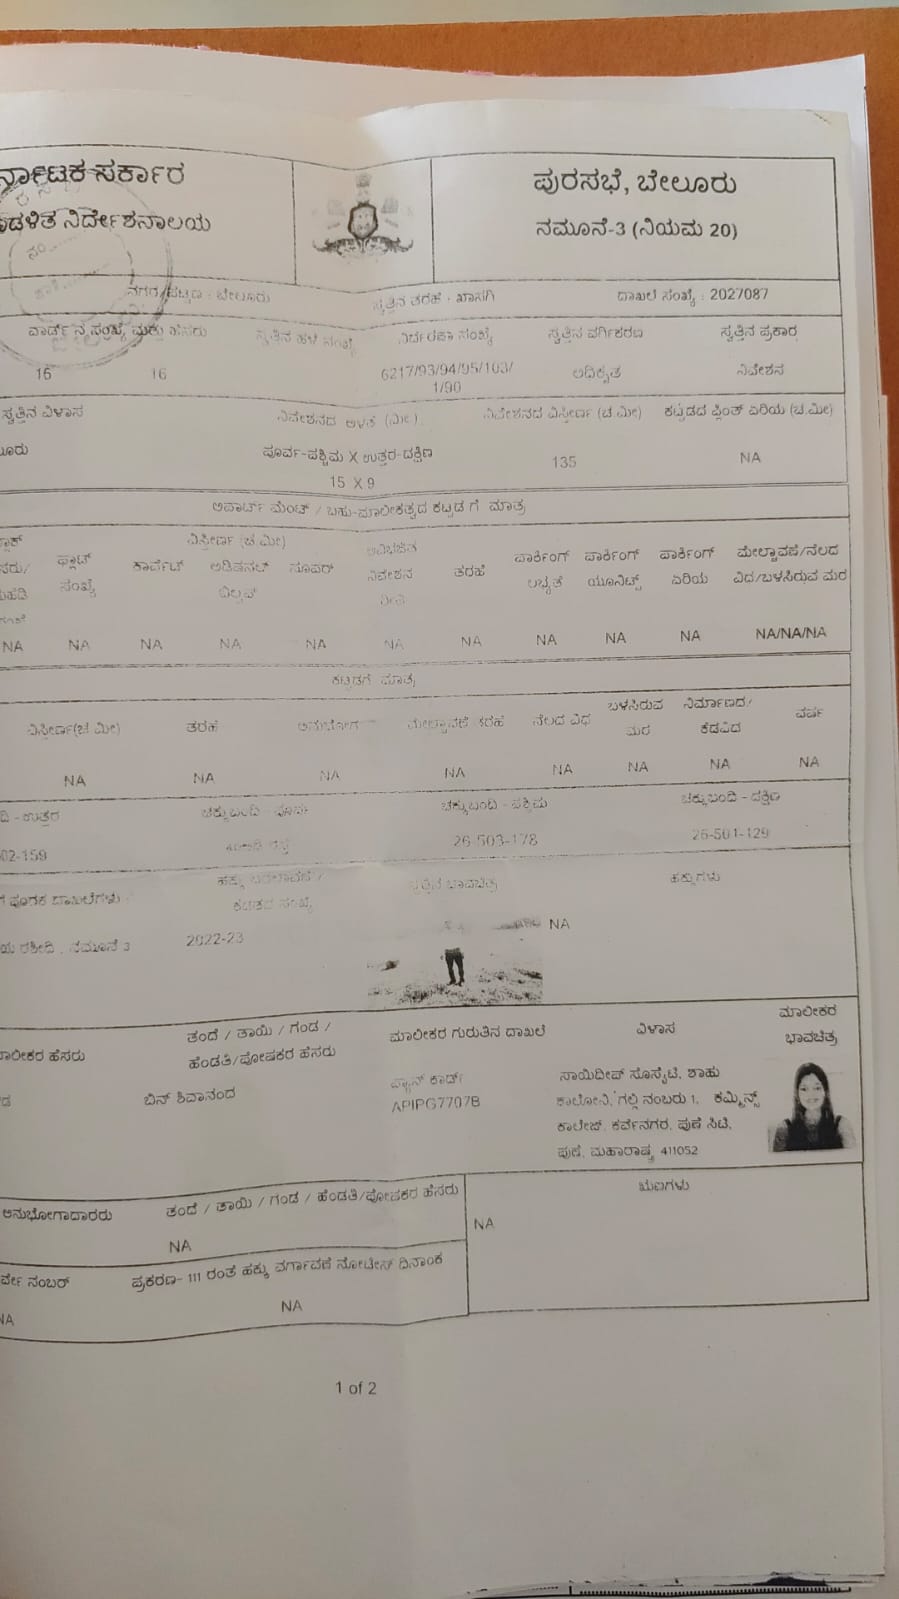 ರ್ನಾಟಕ ಸರ್ಕಾರ
ಡಳಿತ ನಿರ್ದೇಶನಾಲಯ
ಪುರಸಭೆ, ಬೇಲೂರು
ನಮೂನೆ-3 (ನಿಯಮ 20)
ನಗರ/ಪಟ್ಟಣ : ಬೇಲೂರು ಸ್ವತ್ತಿನ ತರಹೆ : ಖಾಸಗಿ ದಾಖಲೆ ಸಂಖ್ಯೆ : 2027087
ವಾರ್ಡ್ ನ ಸಂಖ್ಯೆ ಮತ್ತು ಹೆಸರು ಸ್ವತ್ತಿನ ಹಳೆ ಸಂಖ್ಯೆ ನಿರ್ಧರಣಾ ಸಂಖ್ಯೆ ಸ್ವತ್ತಿನ ವರ್ಗೀಕರಣ ಸ್ವತ್ತಿನ ಪ್ರಕಾರ
16 16 6217/93/94/95/103/ ಅಧಿಕೃತ ನಿವೇಶನ
1/90
ಸ್ವತ್ತಿನ ವಿಳಾಸ ನಿವೇಶನದ ಅಳತೆ (ಮೀ) ನಿವೇಶನದ ವಿಸ್ತೀರ್ಣ (ಚ.ಮೀ) ಕಟ್ಟಡದ ಪ್ಲಿಂತ್ ಏರಿಯ (ಚ.ಮೀ)
ಲೂರು ಪೂರ್ವ-ಪಶ್ಚಿಮ X ಉತ್ತರ-ದಕ್ಷಿಣ 135 NA
15 X 9
ಅಪಾರ್ಟ್ ಮೆಂಟ್ / ಬಹು-ಮಾಲೀಕತ್ವದ ಕಟ್ಟಡ ಗೆ ಮಾತ್ರ
ವಿಸ್ತೀರ್ಣ (ಚ.ಮೀ)
ಫ್ಲಾಟ್ ಕಾರ್ಪೆಟ್ ಅಡಿಷನಲ್ ಸೂಪರ್ ನಿವೇಶನ ತರಹೆ ಪಾರ್ಕಿಂಗ್ ಪಾರ್ಕಿಂಗ್ ಪಾರ್ಕಿಂಗ್ ಮೇಲ್ಚಾವಣೆ/ನೆಲದ
ಸಂಖ್ಯೆ ಬಿಲ್ಟಪ್ ಲಭ್ಯತೆ ಯೂನಿಟ್ಸ್ ಏರಿಯ ವಿಧ/ಬಳಸಿರುವ ಮರ
NA NA NA NA NA NA NA NA NA NA NA/NA/NA
ಕಟ್ಟಡಗೆ ಮಾತ್ರ
ವಿಸ್ತೀರ್ಣ(ಚ.ಮೀ) ತರಹೆ ಅನುಭೋಗ ಮೇಲ್ಚಾವಣೆ ತರಹೆ ನೆಲದ ವಿಧ ಬಳಸಿರುವ ನಿರ್ಮಾಣದ/ ವರ್ಷ
ಮರ ಕೆಡವಿದ
NA NA NA NA NA NA NA NA
ದಿ - ಉತ್ತರ ಚಕ್ಕುಬಂದಿ - ಪೂರ್ವ ಚಕ್ಕುಬಂದಿ - ಪಶ್ಚಿಮ ಚಕ್ಕುಬಂದಿ - ದಕ್ಷಿಣ
02-159 26-503-178 26-501-129
ಪೂರಕ ದಾಖಲೆಗಳು ಸ್ವತ್ತಿನ ಭಾವಚಿತ್ರ ಹಕ್ಕುಗಳು
ಸಂಖ್ಯೆ
ಯ ರಶೀದಿ , ನಮೂನೆ 3 2022-23 NA
ಾಲೀಕರ ಹೆಸರು ತಂದೆ / ತಾಯಿ / ಗಂಡ / ಮಾಲೀಕರ ಗುರುತಿನ ದಾಖಲೆ ವಿಳಾಸ ಮಾಲೀಕರ
ಹೆಂಡತಿ/ಪೋಷಕರ ಹೆಸರು ಭಾವಚಿತ್ರ
ಬಿನ್ ಶಿವಾನಂದ ಪ್ಯಾನ್ ಕಾರ್ಡ್ ಸಾಯಿದೀಪ್ ಸೊಸೈಟಿ, ಶಾಹು
APIPG7707B ಕಾಲೋನಿ, ಗಲ್ಲಿ ನಂಬರು 1, ಕಮ್ಮಿನ್ಸ್
ಕಾಲೇಜ್, ಕರ್ವೆನಗರ, ಪುಣೆ ಸಿಟಿ,
ಪುಣೆ, ಮಹಾರಾಷ್ಟ್ರ 411052
ಅನುಭೋಗಾದಾರರು ತಂದೆ / ತಾಯಿ / ಗಂಡ / ಹೆಂಡತಿ/ಪೋಷಕರ ಹೆಸರು ಋಣಗಳು
NA NA
ರ್ವೇ ನಂಬರ್ ಪ್ರಕರಣ- 111 ರಂತೆ ಹಕ್ಕು ವರ್ಗಾವಣೆ ನೋಟೀಸ್ ದಿನಾಂಕ
NA NA
1 of 2